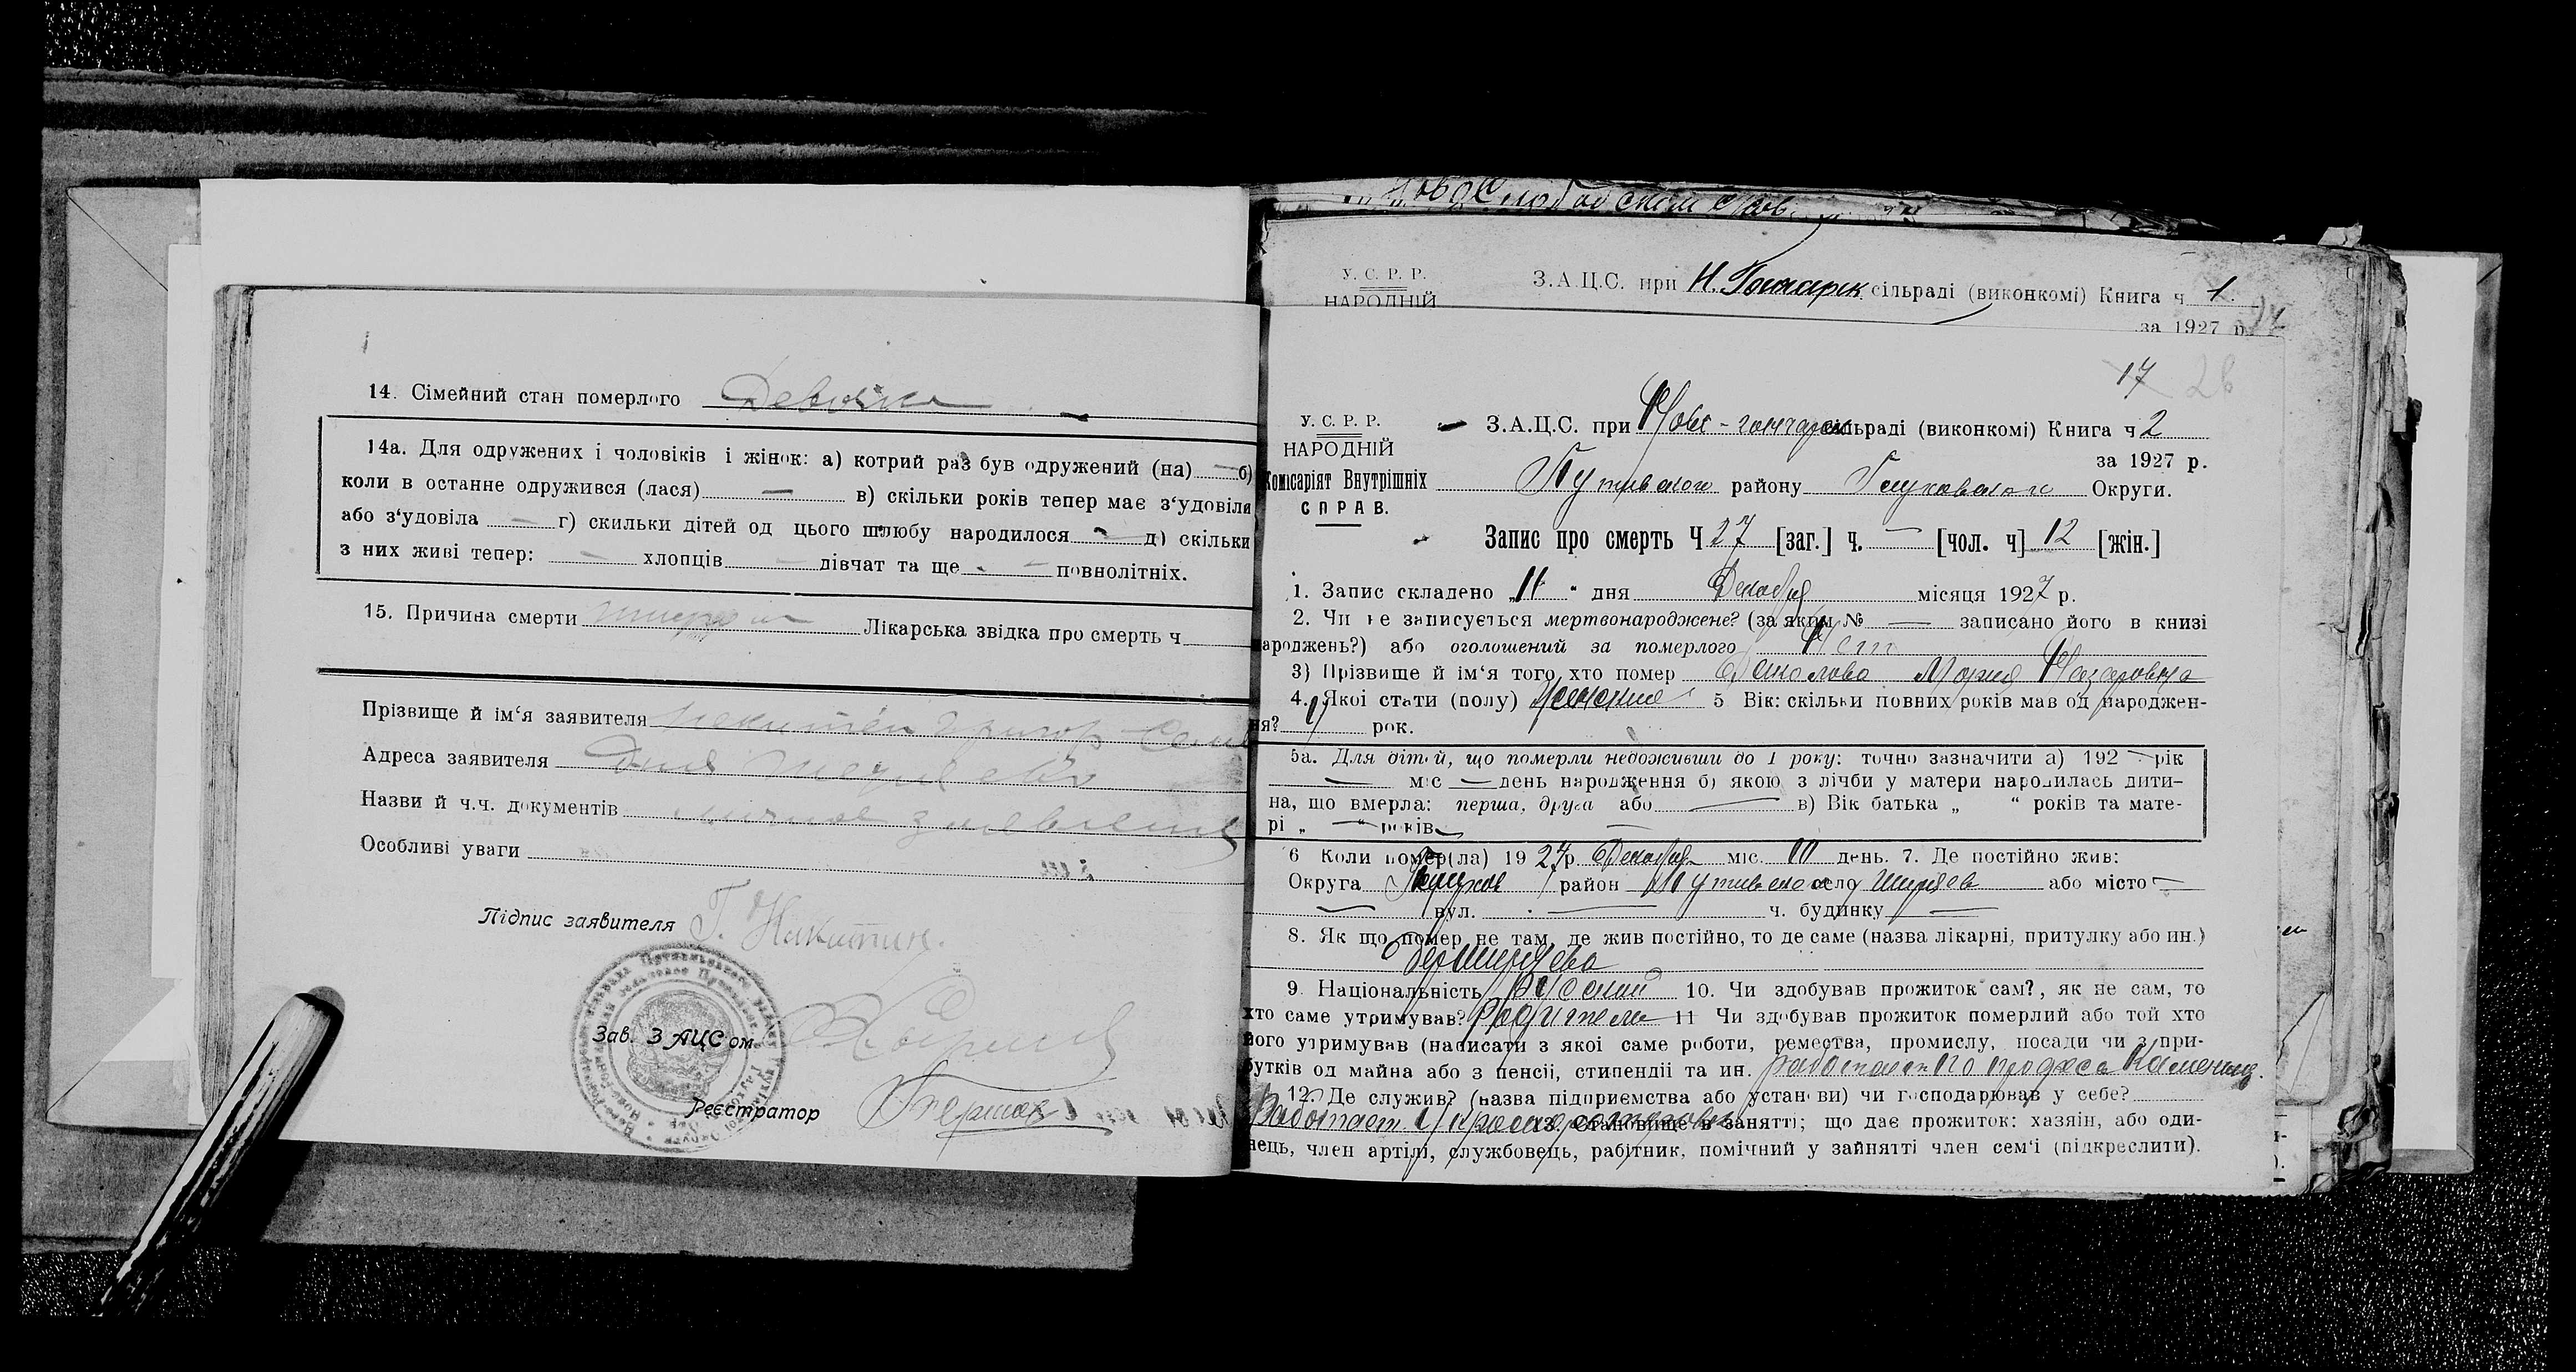 14. Сімейний стан померлого Девочка
14а. Для одружених і чоловіків і жінок: а) котрий раз був одружений (на) — б)
коли в останне одружився (лася) — в) скільки років тепер має з'удовіли
або з'удовіла — г) скильки дітей од цього шлюбу народилося — д) скільки
з них живі тепер: — хлопців — дівчат та ще — повнолітніх.
15. Причина смерти Лікарська звідка про смерть ч
Прізвище й ім'я заявителя Никитин Григор
Адреса заявителя
Назви й ч.ч. документів личное заявление
Особливі уваги
Підпис заявителя Г. Никитин.
Зав. ЗАЦСом
Реєстратор
У. С. Р. Р.
НАРОДНІЙ
З.А.Ц.С. при Н. Гончарск сільраді (виконкомі) Книга ч 1.
за 1927 р.
17 26
У. С. Р. Р.
НАРОДНІЙ
Комісаріят Внутрішніх
СПРАВ.
З.А.Ц.С. при Ново-гончарск сільраді (виконкомі) Книга ч 2
за 1927 р.
Путивлского району Глуховского Округи.
Запис про смерть Ч 27 [заг.] ч. — [чол. ч] 12 [жін.]
1. Запис складено „11" дня Декабря місяця 1927 р.
2. Чи не записується мертвонароджене? (за яким № — записано його в книзі
народжень?) або оголошений за померлого Нет
3) Прізвище й ім'я того хто помер Мария Назаровна
4. Якої стати (полу) женские 5 Вік: скільки повних років мав од народжен-
ня? 9 рок.
5а. Для дітей, що померли недоживши до 1 року: точно зазначити а) 192 — рік
— міс — день народження б) якою з лічби у матери народилась дити-
на, що вмерла: перша, друга або — в) Вік батька „ " років та мате-
рі „ — " років
6 Коли помер(ла) 1927 р. Декабря міс. 10 день. 7. Де постійно жив:
Округа Глухов район Путивлско село Ширяев або місто —
— вул. — ч. будинку —
8. Як що помер не там, де жив постійно, то де саме (назва лікарні, притулку або ин.)
Ширяево
9. Національність Руский 10. Чи здобував прожиток сам?, як не сам, то
хто саме утримував? Родители 11 Чи здобував прожиток померлий або той хто
його утримував (написати з якої саме роботи, ремества, промислу, посади чи з при-
бутків од майна або з пенсії, стипендії та ин. работает по професс Каменщ.
12. Де служив? (назва підприємства або установи) чи господарював у себе?
Работает 13. становище в занятті; що дає прожиток: хазяїн, або оди-
нець, член артілі, службовець, рабітник, помічний у зайнятті член сем'ї (підкреслити).